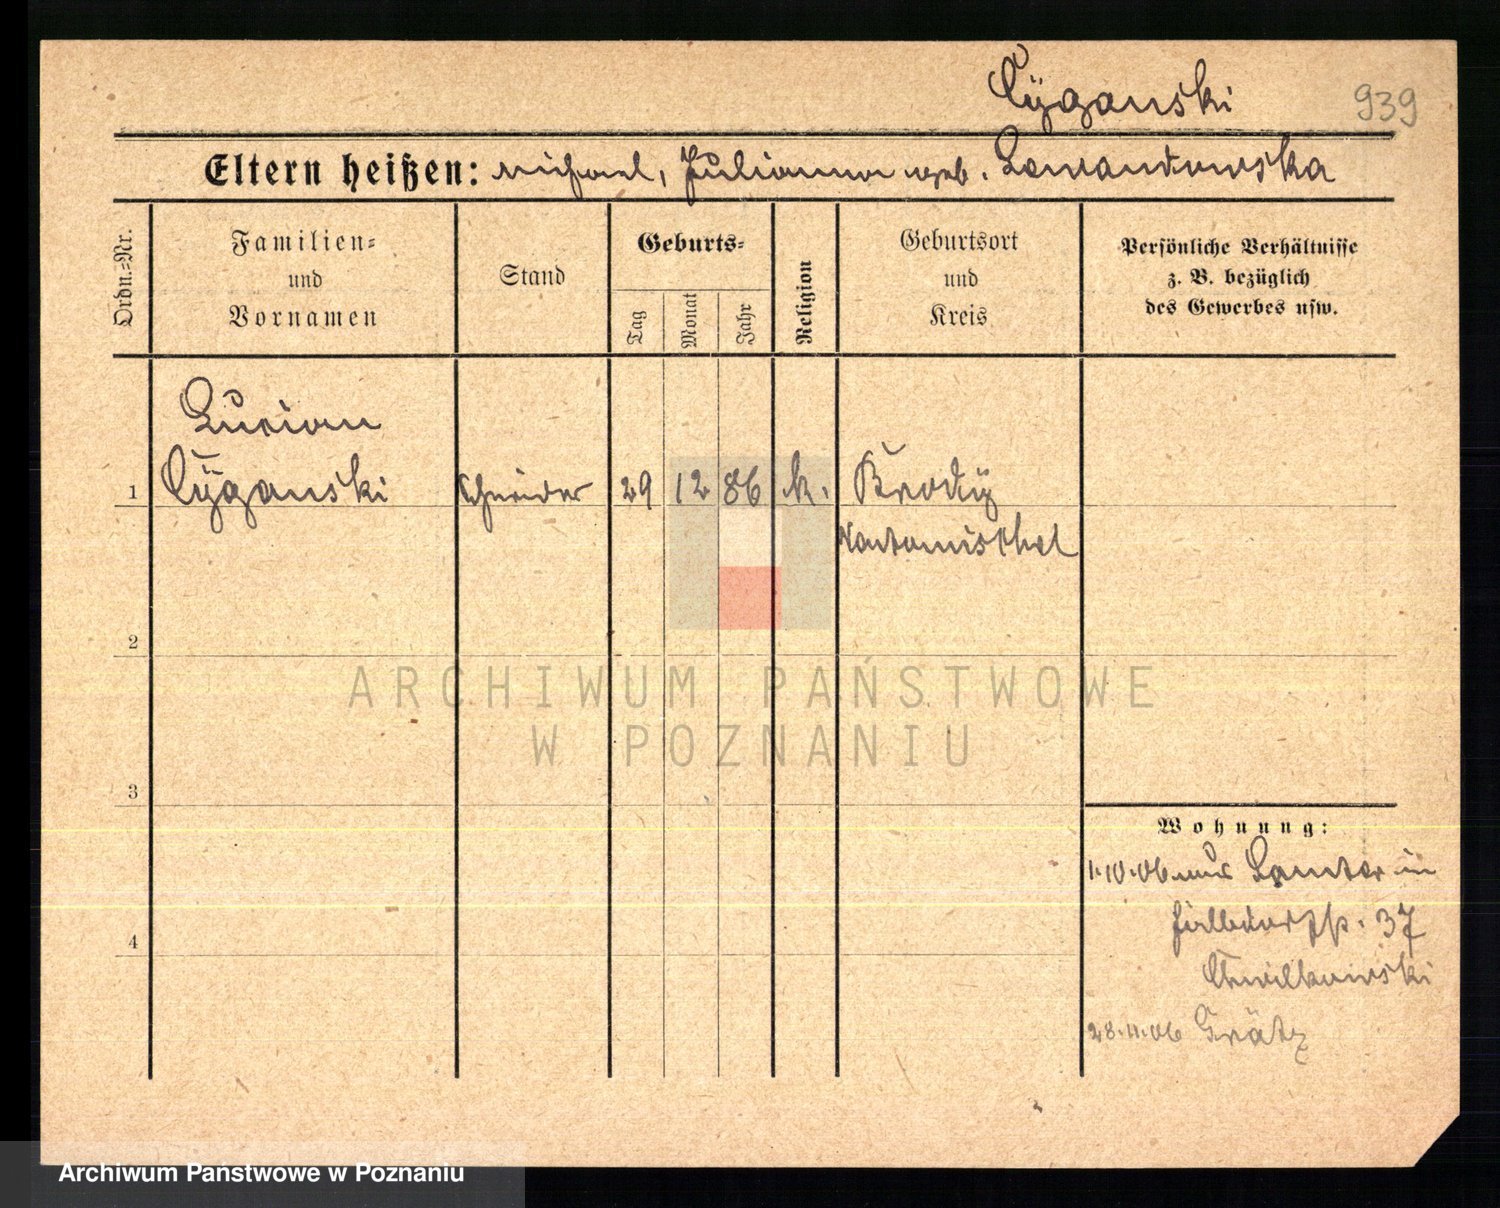 Cÿganski 939
Eltern heißen: Michael, Julianna geb. Lewandowska
Ordn.=Nr.
Familien=
und
Vornamen
Stand
Geburts=
Tag
Monat
Jahr
Religion
Geburtsort
und
Kreis
Persönliche Verhältnisse
z. B. bezüglich
des Gewerbes usw.
Lucian
1 Cÿganski Schneider 29 12 86 k. Brodÿ
Neutomischel
2
ARCHIWUM PAŃSTWOWE
W POZNANIU
3
Wohnung:
1.10.06 aus in
37
Chwilkowski
4
28.11.06 Grätz
Archiwum Państwowe w Poznaniu